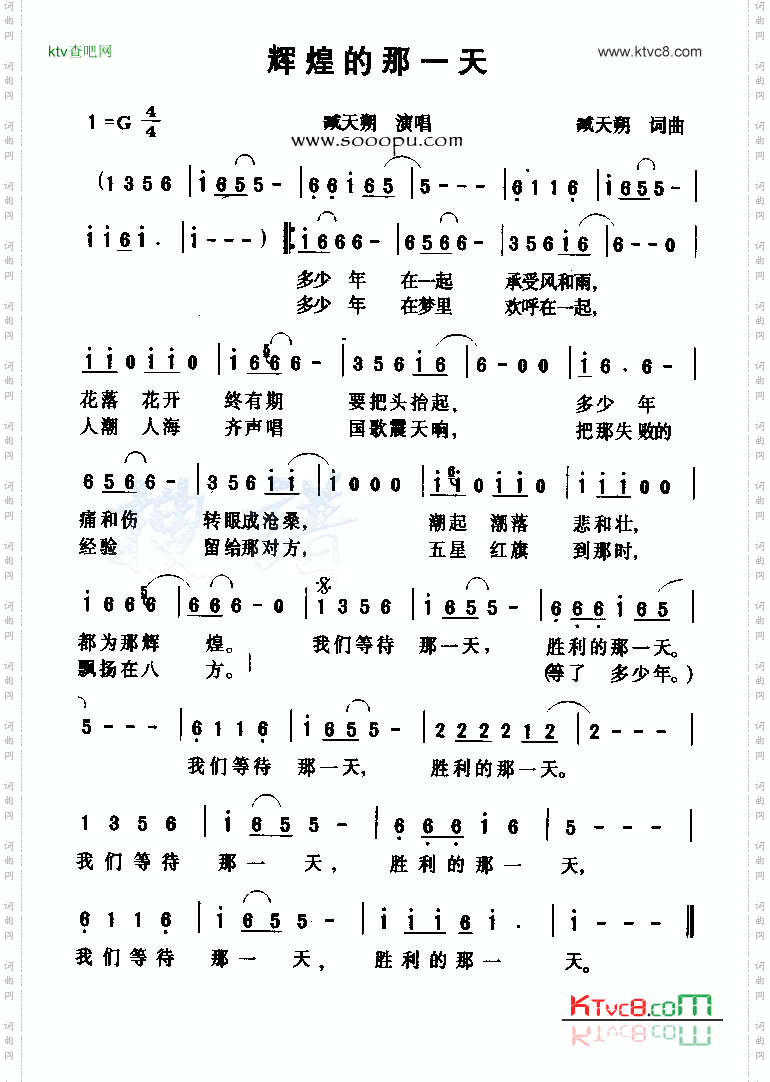 ktv查吧网
辉煌的那一天
www.ktvc8.com
1=G 4/4
臧天朔 演唱
臧天朔 词曲
www.sooopu.com
(1 3 5 6 | i 6 5 5 - | 6 6 i 6 5 | 5 - - - | 6 1 1 6 | i 6 5 5 - |
i i 6 i . | i - - - ) ‖: i 6 6 6 - | 6 5 6 6 - | 3 5 6 i 6 | 6 - - 0 |
多少 年 在一起 承受风和雨,
多少 年 在梦里 欢呼在一起,
i i 0 i i 0 | i 6 5 6 6 - | 3 5 6 i 6 | 6 - 0 0 | i 6 . 6 - |
花落 花开 终有期 要把头抬起, 多少 年
人潮 人海 齐声唱 国歌震天响, 把那失败的
6 5 6 6 - | 3 5 6 i i | i 0 0 0 | i 6 i 0 i i 0 | i i i 0 |
痛和伤 转眼成沧桑, 潮起 潮落 悲和壮,
经验 留给那对方, 五星 红旗 到那时,
i 6 6 5 6 | 6 6 6 - 0 | 1 3 5 6 | i 6 5 5 - | 6 6 6 i 6 5 |
都为那辉 煌。 我们等待 那一天, 胜利的那一天。
飘扬在八 方。 (等了 多少年。)
5 - - - | 6 1 1 6 | i 6 5 5 - | 2 2 2 2 1 2 | 2 - - - |
我们等待 那一天, 胜利的那一天。
1 3 5 6 | i 6 5 5 - | 6 6 6 i 6 | 5 - - - |
我们等待 那一 天, 胜利的那一 天,
6 1 1 6 | i 6 5 5 - | i i i 6 i . | i - - - ‖
我们等待 那一 天, 胜利的那一 天。
KTvc8.com
词曲网